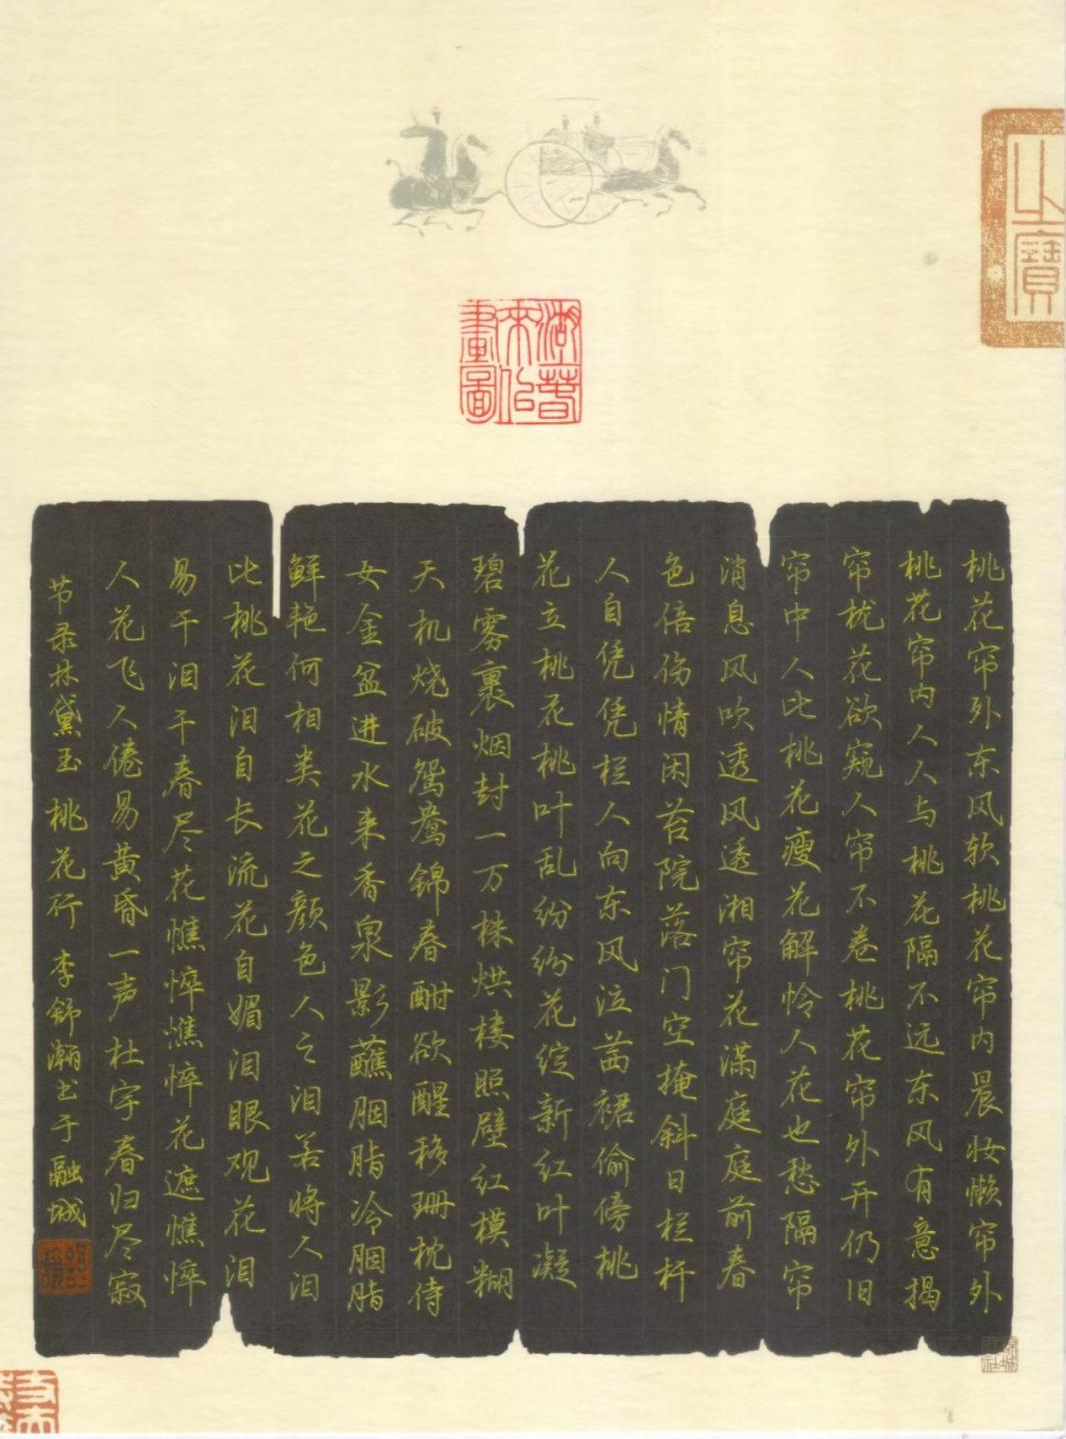 之寶
湖上春来似畫圖
桃花帘外东风软桃花帘内晨妆懒帘外
桃花帘内人人与桃花隔不远东风有意揭
帘栊花欲窥人帘不卷桃花帘外开仍旧
帘中人比桃花瘦花解怜人花也愁隔帘
消息风吹透风透湘帘花满庭庭前春
色倍伤情闲苔院落门空掩斜日栏杆
人自凭凭栏人向东风泣茜裙偷傍桃
花立桃花桃叶乱纷纷花绽新红叶凝
碧雾裹烟封一万株烘楼照壁红模糊
天机烧破鸳鸯锦春酣欲醒移珊枕侍
女金盆进水来香泉影蘸胭脂冷胭脂
鲜艳何相类花之颜色人之泪若将人泪
比桃花泪自长流花自媚泪眼观花泪
易干泪干春尽花憔悴憔悴花遮憔悴
人花飞人倦易黄昏一声杜宇春归尽寂
节录林黛玉桃花行李舒瀚书于融城